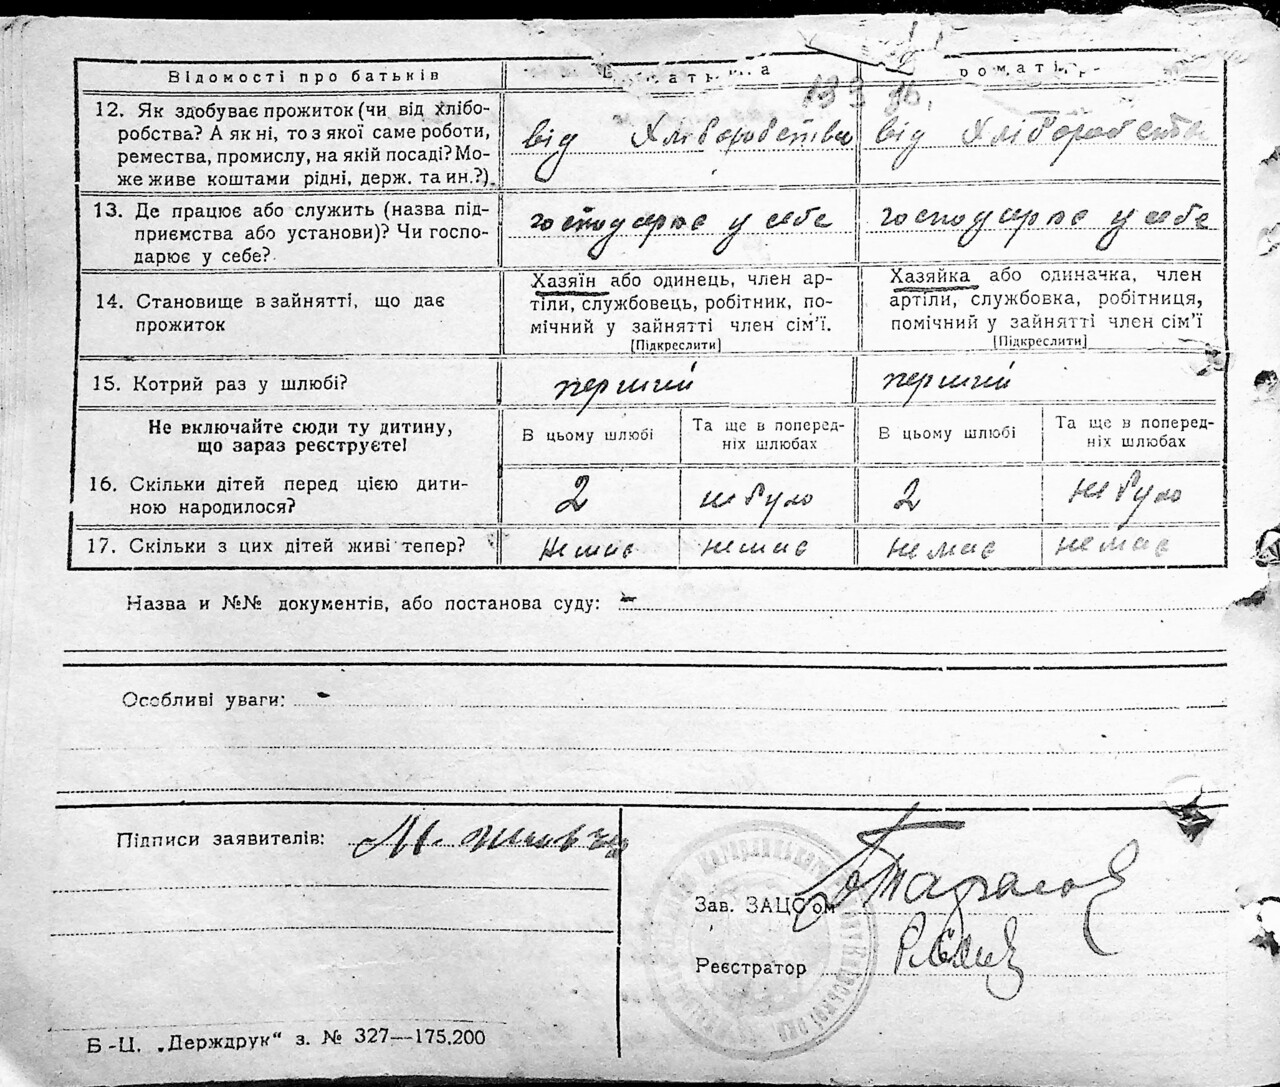 Відомості про батьків
12. Як здобуває прожиток (чи від хлібо-
робства? А як ні, то з якої саме роботи,
ремества, промислу, на якій посаді? Мо-
же живе коштами рідні, держ. та ин.?)
від Хліборобства
від Хліборобства
13. Де працює або служить (назва під-
приємства або установи)? Чи госпо-
дарює у себе?
господарює у себе
господарює у себе
14. Становище в зайнятті, що дає
прожиток
Хазяїн або одинець, член ар-
тіли, службовець, робітник, по-
мічний у зайнятті член сім'ї.
[Підкреслити]
Хазяйка або одиначка, член
артіли, службовка, робітниця,
помічний у зайнятті член сім'ї
[Підкреслити]
15. Котрий раз у шлюбі?
перший
перший
Не включайте сюди ту дитину,
що зараз реєструєте!
В цьому шлюбі
Та ще в поперед-
ніх шлюбах
В цьому шлюбі
Та ще в поперед-
ніх шлюбах
16. Скільки дітей перед цією дити-
ною народилося?
2
не було
2
не було
17. Скільки з цих дітей живі тепер?
немає
немає
немає
немає
Назва и №№ документів, або постанова суду: –
Особливі уваги: -
Підписи заявителів:
Зав. ЗАЦС'ом
Реєстратор
Б-Ц. „Держдрук" з. № 327—175.200